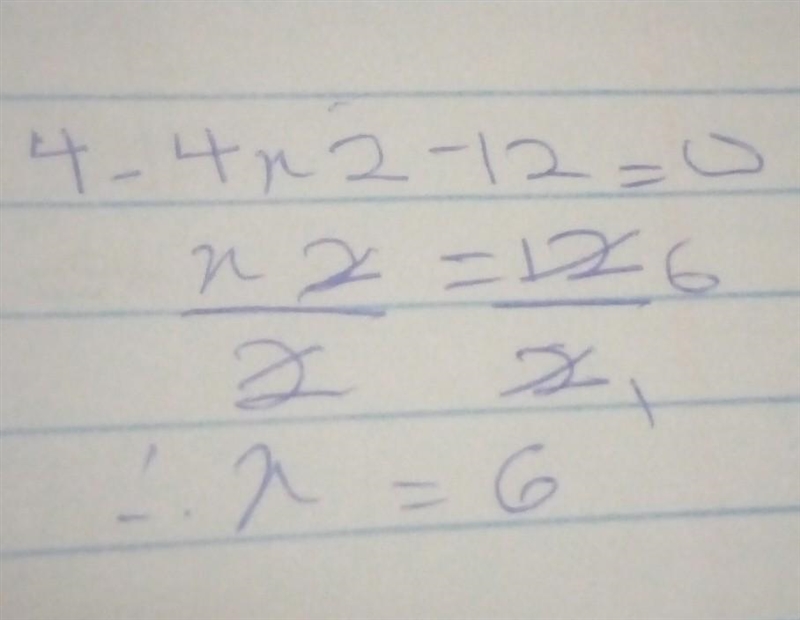 4 - 4x2 - 12 = 0
x2 = 12 6
2 2 1
∴ x = 6